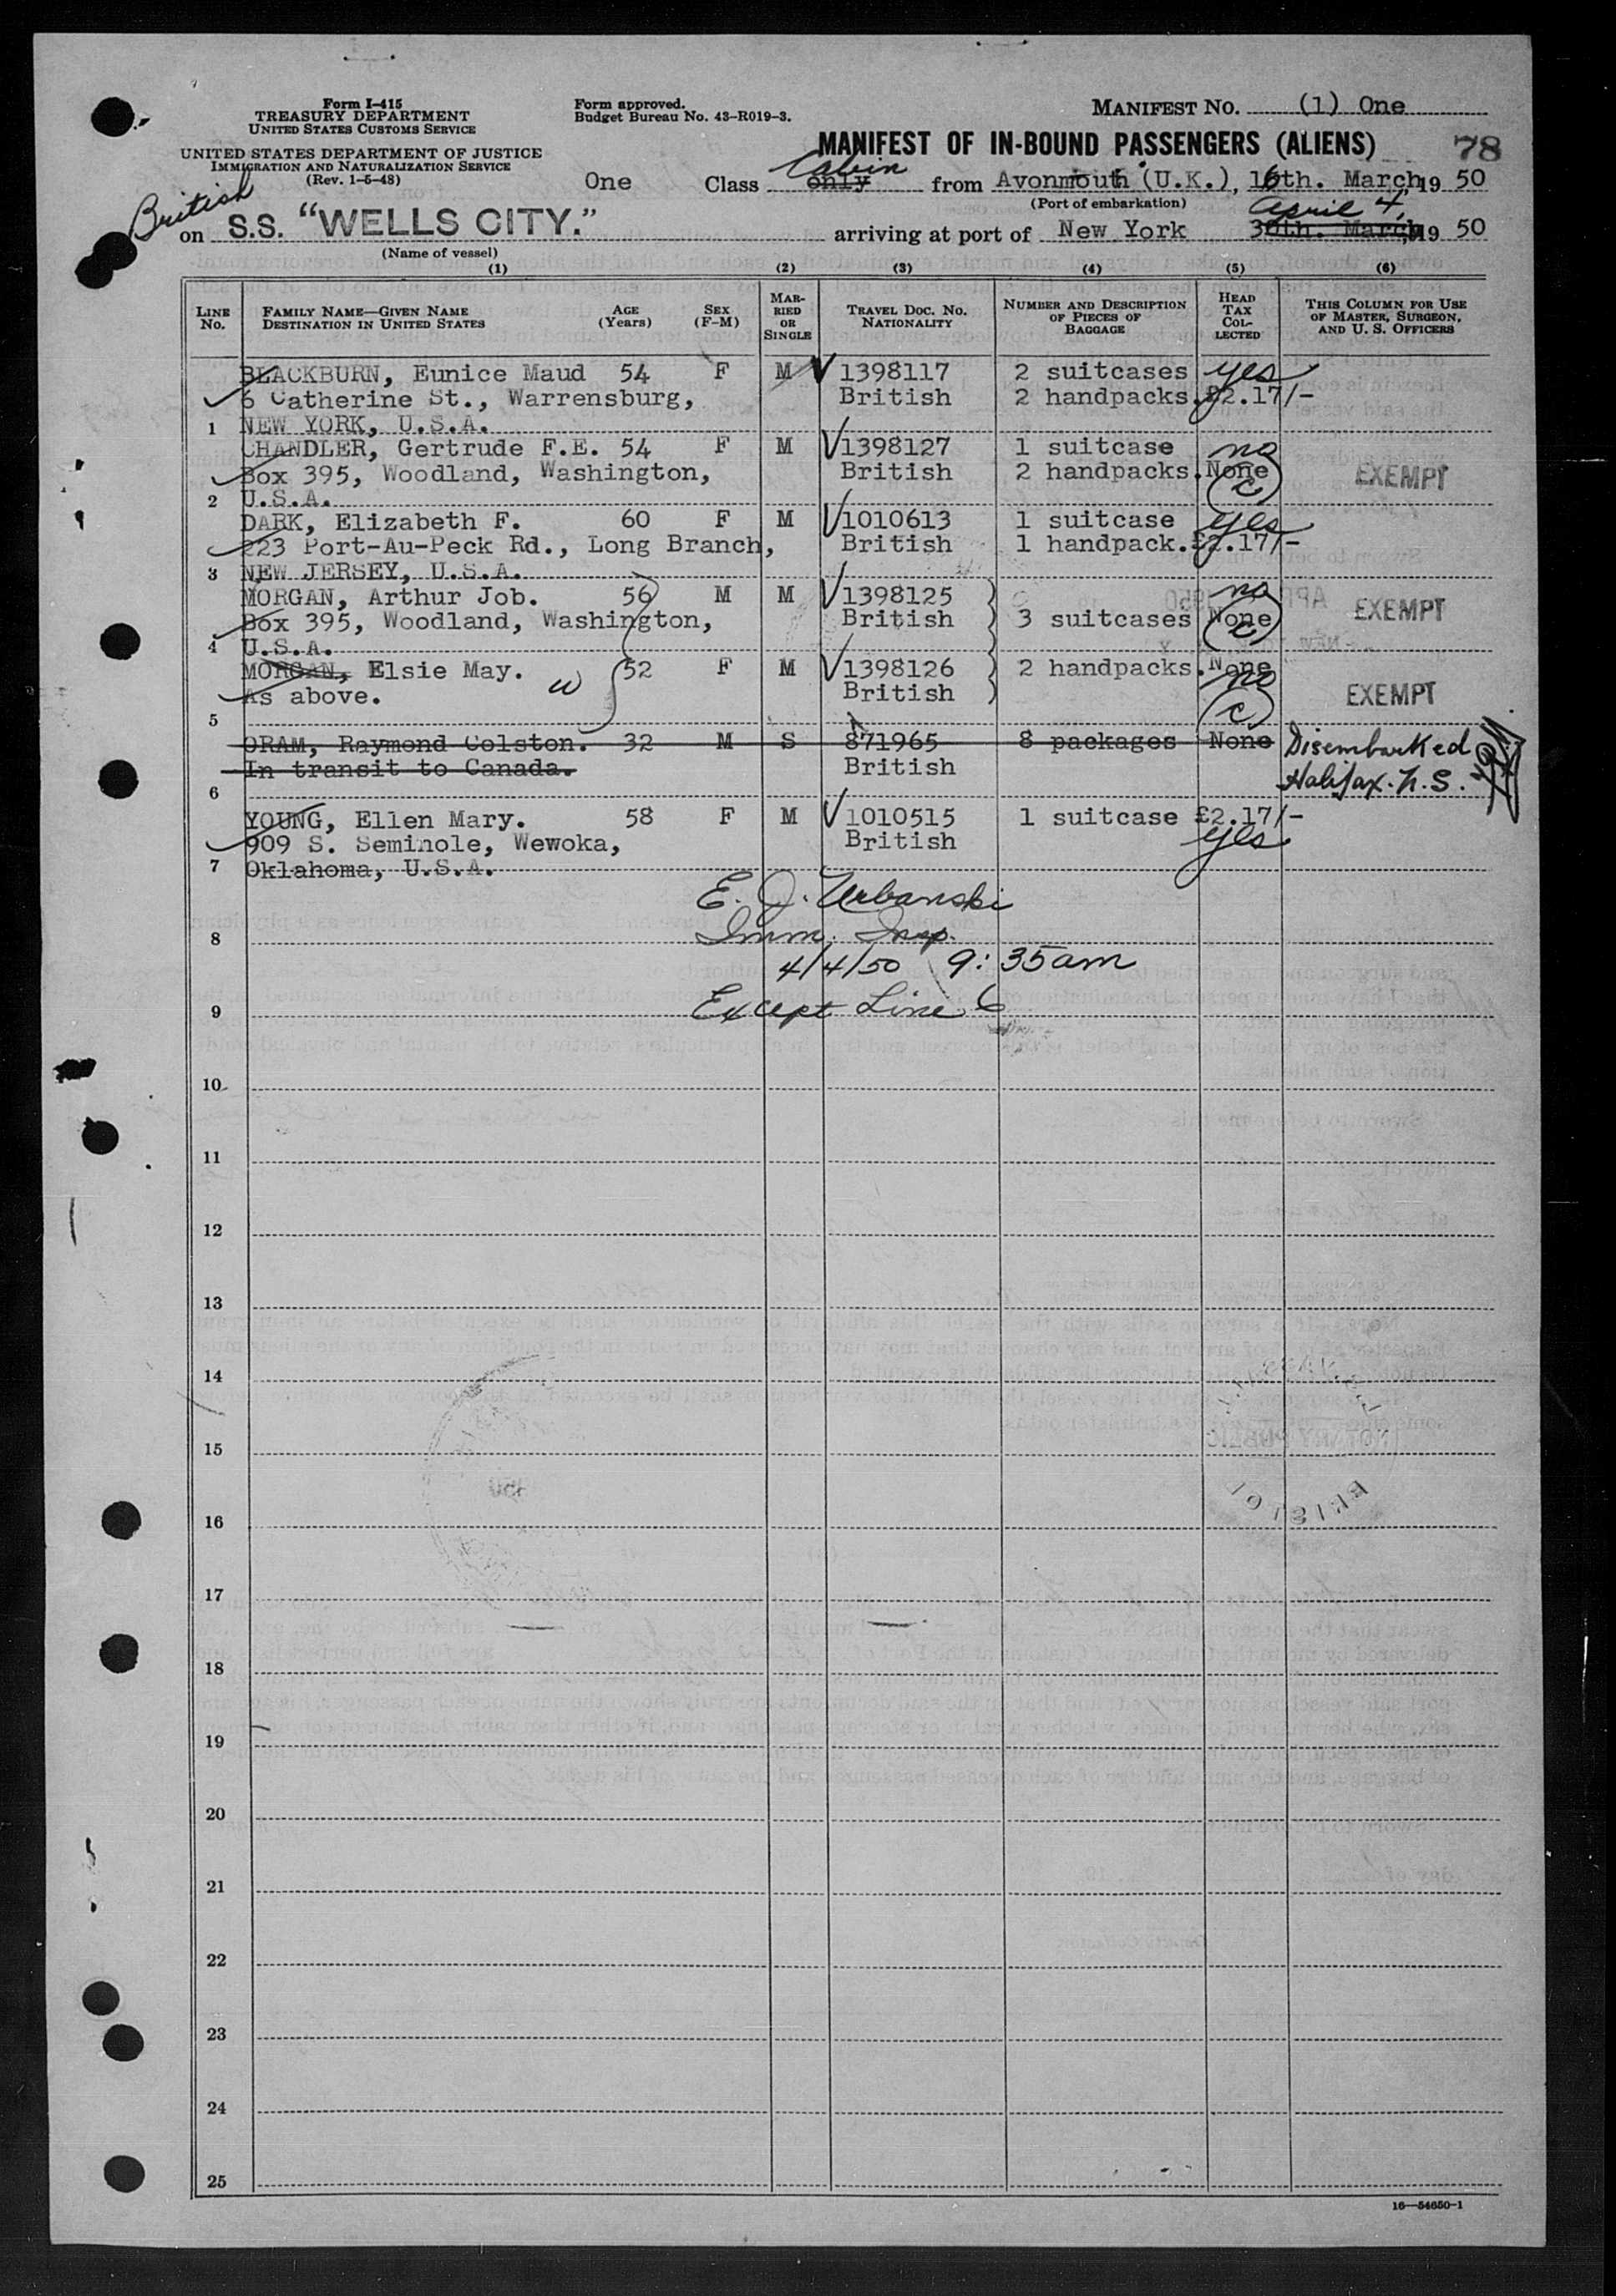 Form I-415
TREASURY DEPARTMENT
UNITED STATES CUSTOMS SERVICE
UNITED STATES DEPARTMENT OF JUSTICE
IMMIGRATION AND NATURALIZATION SERVICE
(Rev. 1-5-48)
Form approved.
Budget Bureau No. 43-R019-3.
MANIFEST NO. (1) One
MANIFEST OF IN-BOUND PASSENGERS (ALIENS) 78
Cabin
One Class only from Avonmouth (U.K.), 16th. March, 19 50
(Port of embarkation)
British
April 4,
on S.S. "WELLS CITY." arriving at port of New York 30th. March, 19 50
(Name of vessel)
(1) (2) (3) (4) (5) (6)
LINE No.
FAMILY NAME—GIVEN NAME
DESTINATION IN UNITED STATES
AGE (Years)
SEX (F-M)
MARRIED OR SINGLE
TRAVEL DOC. NO.
NATIONALITY
NUMBER AND DESCRIPTION OF PIECES OF BAGGAGE
HEAD TAX COLLECTED
THIS COLUMN FOR USE OF MASTER, SURGEON, AND U. S. OFFICERS
BLACKBURN, Eunice Maud 54 F M 1398117 2 suitcases yes
6 Catherine St., Warrensburg, British 2 handpacks. £2.17/-
1 NEW YORK, U.S.A.
CHANDLER, Gertrude F.E. 54 F M 1398127 1 suitcase no
Box 395, Woodland, Washington, British 2 handpacks. None EXEMPT
(c)
2 U.S.A.
DARK, Elizabeth F. 60 F M 1010613 1 suitcase yes
223 Port-Au-Peck Rd., Long Branch, British 1 handpack. £2.17/-
3 NEW JERSEY, U.S.A.
MORGAN, Arthur Job. 56 M M 1398125 no EXEMPT
Box 395, Woodland, Washington, British 3 suitcases None
(c)
4 U.S.A.
MORGAN, Elsie May. 52 F M 1398126 2 handpacks. None
As above. w British no EXEMPT
5 (c)
ORAM, Raymond Colston. 32 M S 871965 8 packages None Disembarked
In transit to Canada. British Halifax. N.S.
6
YOUNG, Ellen Mary. 58 F M 1010515 1 suitcase £2.17/-
909 S. Seminole, Wewoka, British yes
7 Oklahoma, U.S.A.
E. J. Urbanski
8 Imm. Insp.
4/4/50 9:35am
9 Except Line 6
10
11
12
13
14
15
16
17
18
19
20
21
22
23
24
25
16—54650-1